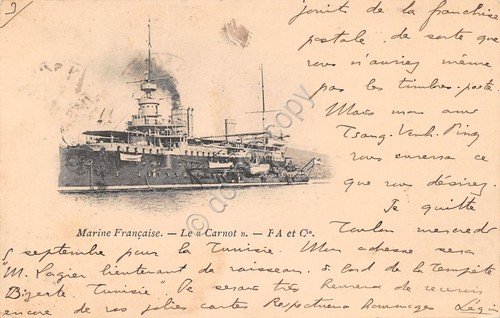 jouit de la franchise
postale, de sorte que
vous n'auriez même
pas les timbres-poste
Mais mon ami
Tsang-Venh-Ping
vous enverra ce
que vous désirez
Je quitte
Toulon mercredi
Marine Française. — Le « Carnot ». — FA et Cie.
5 septembre pour la Tunisie. Mon adresse sera
"M. Lagier lieutenant de vaisseau, à bord de la Tempête
Bizerte. Tunisie". Je serais très heureux de recevoir
encore de vos jolies cartes Respectueux hommages